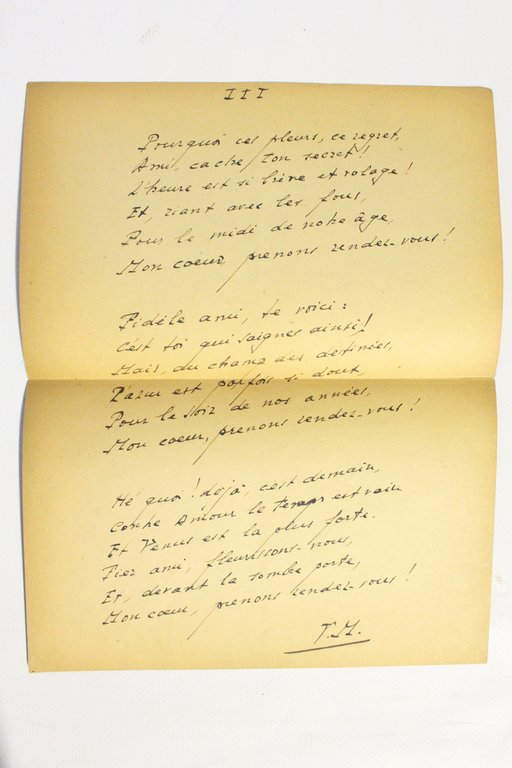 III
Pourquoi ces pleurs, ce regret,
Ami, cache ton secret!
L'heure est si brève et volage!
Et riant avec les fous,
Pour le midi de notre âge,
Mon coeur, prenons rendez-vous!
Fidèle ami, te voici:
C'est toi qui saignes ainsi!
Mais, du champ des destinées,
L'azur est parfois si doux
Pour le soir de nos années,
Mon coeur, prenons rendez-vous!
Hé quoi! déjà, c'est demain,
Contre Amour le Temps est vain
Et Vénus est la plus forte.
Fier ami, fleurissons-nous,
Et, devant la sombre porte,
Mon coeur, prenons rendez-vous!
T.M.